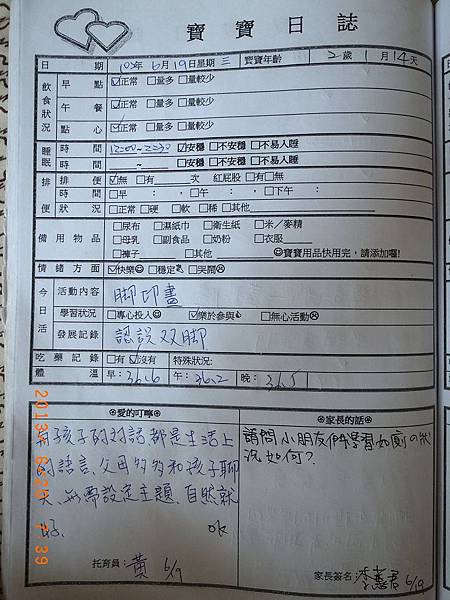 寶寶日誌
日期 102年6月19日星期三 寶寶年齡 2歲1月14天
飲食狀況 早點 ☑正常 □量多 □量較少
午餐 ☑正常 □量多 □量較少
點心 ☑正常 □量多 □量較少
睡眠 時間 12:00~2:30 ☑安穩 □不安穩 □不易入睡
時間 ~ □安穩 □不安穩 □不易入睡
排便 排便 ☑無 □有___次 紅屁股 □有□無
時間 □早 : ,□午 : ,□下午 :
狀況 □正常□硬 □軟 □稀□其他
備用物品 □尿布 □濕紙巾 □衛生紙 □米/麥精
□母乳 □副食品 □奶粉 □衣服
□褲子 □其他 ☺寶寶用品快用完,請添加喔!
情緒方面 ☑快樂☺ □穩定 □哭鬧☹
今日活 活動內容 腳印畫
學習狀況 □專心投入☺ ☑樂於參與 □無心活動☹
發展記錄 認識双腳
吃藥記錄 □有 ☑沒有 特殊狀況:
體溫 早:36.6 午:36.2 晚:36.5
⊙愛的叮嚀⊙
與孩子的對話都是生活上
的語言、父母多多和孩子聊
天、無需設定主題、自然就
好、 ok
托育員:黃 6/19
⊙家長的話⊙
請問小朋友們學習如廁の狀
況如何?
家長簽名:李蕙君 6/19
2013 6 20 7:39